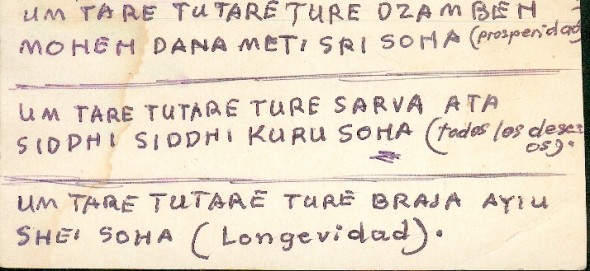 UM TARE TUTARE TURE DZAMBEH
MOHEH DANA METI SRI SOHA (prosperidad
UM TARE TUTARE TURE SARVA ATA
SIDDHI SIDDHI KURU SOHA (todos los deseos
os).
UM TARE TUTARE TURE BRAJA AYIU
SHEI SOHA (Longevidad).